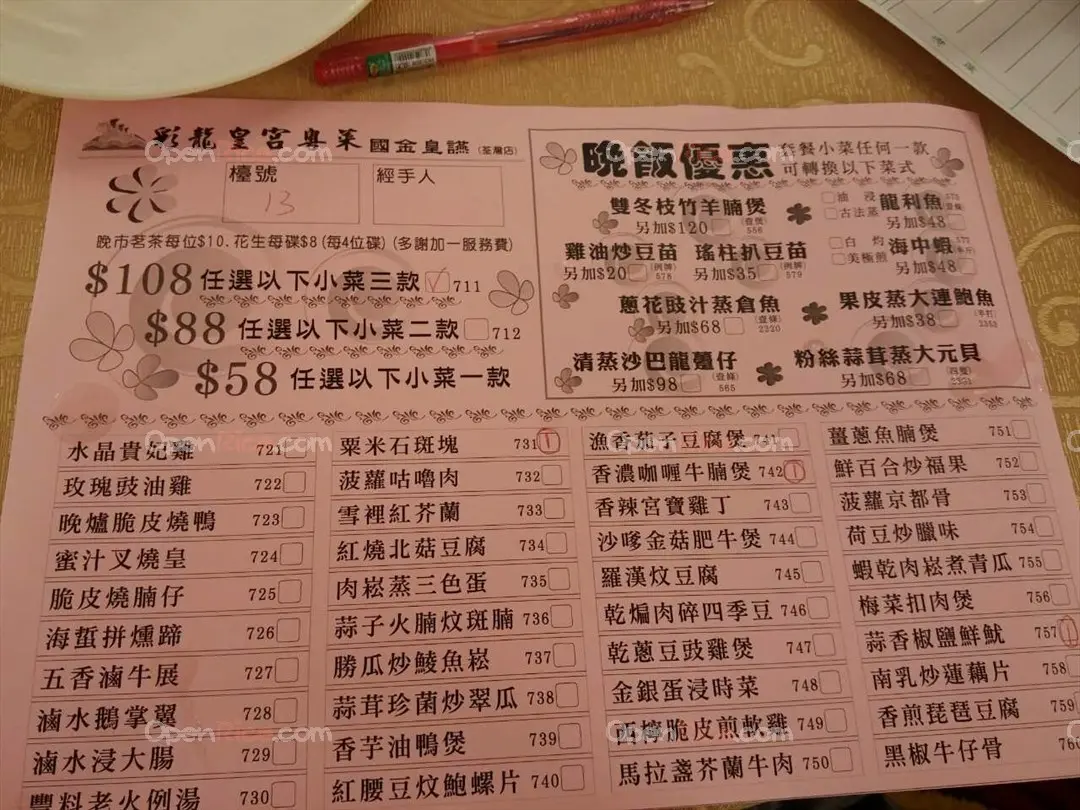 彩龍皇宮粵菜 國金皇讌 (荃灣店)
檯號 13
經手人
晚市茗茶每位$10. 花生每碟$8 (每4位碟) (多謝加一服務費)
$108 任選以下小菜三款 711
$88 任選以下小菜二款 712
$58 任選以下小菜一款
晚飯優惠 套餐小菜任何一款
可轉換以下菜式
雙冬枝竹羊腩煲
另加$120 (壹煲) 556
油浸 古法蒸 龍利魚
另加$48
雞油炒豆苗
另加$20 (例牌) 578
瑤柱扒豆苗
另加$35 (例牌) 579
白灼 美極煎 海中蝦
另加$48
蔥花豉汁蒸倉魚
另加$68 (壹條) 2320
果皮蒸大連鮑魚
另加$38
清蒸沙巴龍躉仔
另加$98 (壹條) 565
粉絲蒜茸蒸大元貝
另加$68
水晶貴妃雞 721
玫瑰豉油雞 722
晚爐脆皮燒鴨 723
蜜汁叉燒皇 724
脆皮燒腩仔 725
海蜇拼燻蹄 726
五香滷牛展 727
滷水鵝掌翼 728
滷水浸大腸 729
豐料老火例湯 730
粟米石斑塊 731
菠蘿咕嚕肉 732
雪裡紅芥蘭 733
紅燒北菇豆腐 734
肉崧蒸三色蛋 735
蒜子火腩炆斑腩 736
勝瓜炒鯪魚崧 737
蒜茸珍菌炒翠瓜 738
香芋油鴨煲 739
紅腰豆炆鮑螺片 740
漁香茄子豆腐煲 741
香濃咖喱牛腩煲 742
香辣宮寶雞丁 743
沙嗲金菇肥牛煲 744
羅漢炆豆腐 745
乾煸肉碎四季豆 746
乾蔥豆豉雞煲 747
金銀蛋浸時菜 748
西檸脆皮煎軟雞 749
馬拉盞芥蘭牛肉 750
薑蔥魚腩煲 751
鮮百合炒福果 752
菠蘿京都骨 753
荷豆炒臘味 754
蝦乾肉崧煮青瓜 755
梅菜扣肉煲 756
蒜香椒鹽鮮魷 757
南乳炒蓮藕片 758
香煎琵琶豆腐 759
黑椒牛仔骨 760
OpenRice.com
OpenRice.com
OpenRice.com
OpenRice.com
OpenRice.com
OpenRice.com
OpenRice.com
OpenRice.com
OpenRice.com